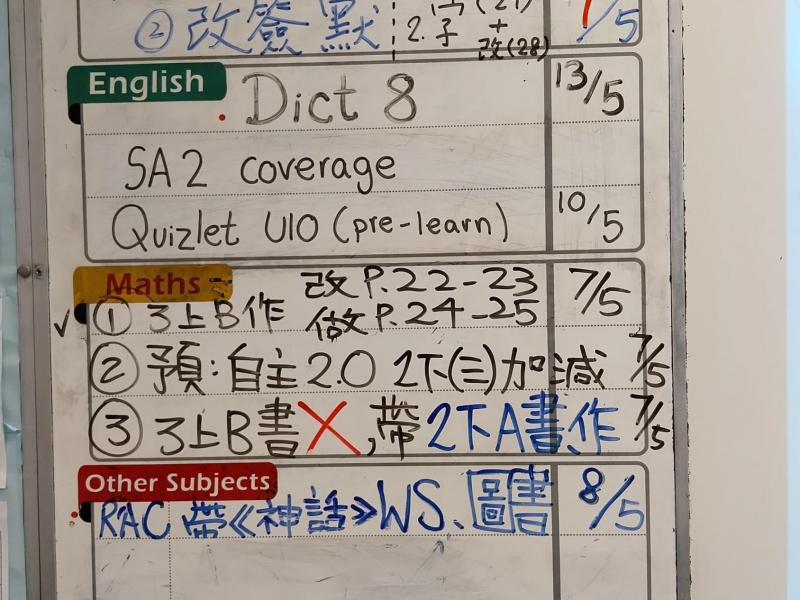 ② 改簽默 2. 字 (21) 7/5
+
改(28)
English Dict 8 13/5
SA2 coverage
Quizlet U10 (pre-learn) 10/5
Maths 改 P.22-23 7/5
✓ ① 3上B作 做 P.24-25
② 預:自主2.0 2下(三)加減 7/5
③ 3上B書X,帶2下A書作 7/5
Other Subjects
RAC 帶《神話》WS、圖書 8/5